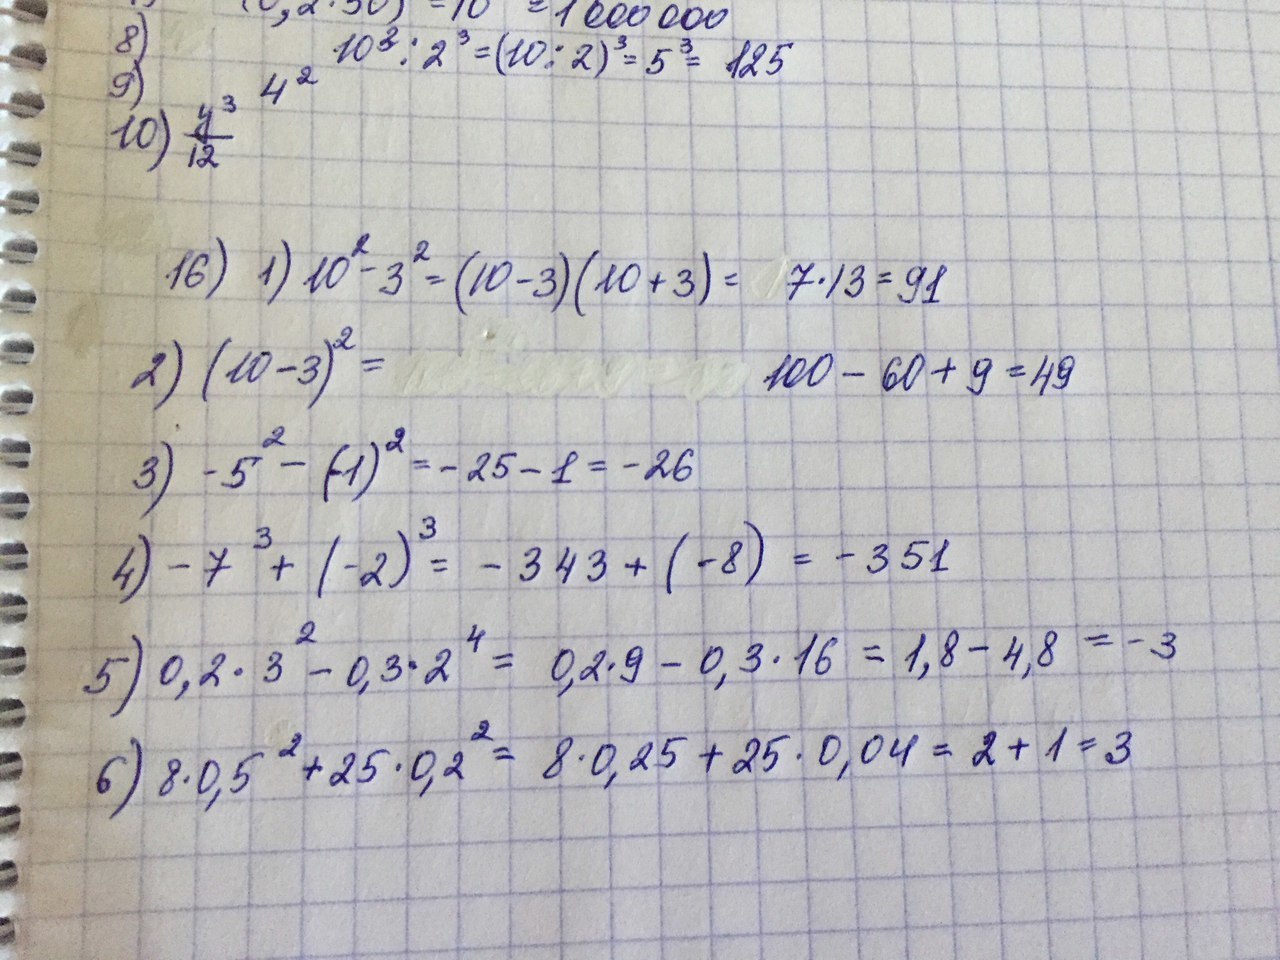 (0,2·50) = 10 = 1 000 000
8) 10³ : 2³ = (10 : 2)³ = 5³ = 125
9) 4²
10) y³/12
16) 1) 10² - 3² = (10 - 3)(10 + 3) = 7·13 = 91
2) (10 - 3)² = 100 - 60 + 9 = 49
3) -5² - (-1)² = -25 - 1 = -26
4) -7³ + (-2)³ = -343 + (-8) = -351
5) 0,2·3² - 0,3·2⁴ = 0,2·9 - 0,3·16 = 1,8 - 4,8 = -3
6) 8·0,5² + 25·0,2² = 8·0,25 + 25·0,04 = 2 + 1 = 3